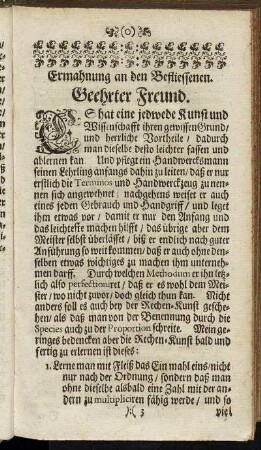 (o)
Ermahnung an den Beflissenen.
Geehrter Freund.
ES hat eine jedwede Kunst und
Wissenschafft ihren gewissen Grund/
und herrliche Vortheile / dadurch
man dieselbe desto leichter fassen und
ablernen kan. Und pflegt ein Handwercksmann
seinen Lehrling anfangs dahin zu leiten/ daß er nur
erstlich die Terminos und Handwerckzeug zu nen-
nen sich angewehnet / nachgehends weiset er auch
eines jeden Gebrauch und Handgriff / und leget
ihm etwas vor / damit er nur den Anfang und
das leichteste machen hilfft / das übrige aber dem
Meister selbst überläßet / biß er endlich nach guter
Anführung so weit kommen/ daß er auch ohne den-
selben etwas wichtiges zu machen ihm unterneh-
nen darff. Durch welchen Methodum er ihn letz-
lich also perfectioniret/ daß er es wohl dem Mei-
ster / wo nicht zuvor/ doch gleich thun kan. Nicht
anders soll es auch bey der Rechen-Kunst gesche-
hen/ als daß man von der Benennung durch die
Species auch zu der Proportion schreite. Mein ge-
ringes bedencken aber die Rechen-Kunst bald und
fertig zu erlernen ist dieses:
1. Lerne man mit Fleiß das Ein mahl eins/ nicht
nur nach der Ordnung / sondern daß man
ohne dieselbe alsbald eine Zahl mit der an-
dern zu multipliciren fähig werde / und so
):( 3 viel